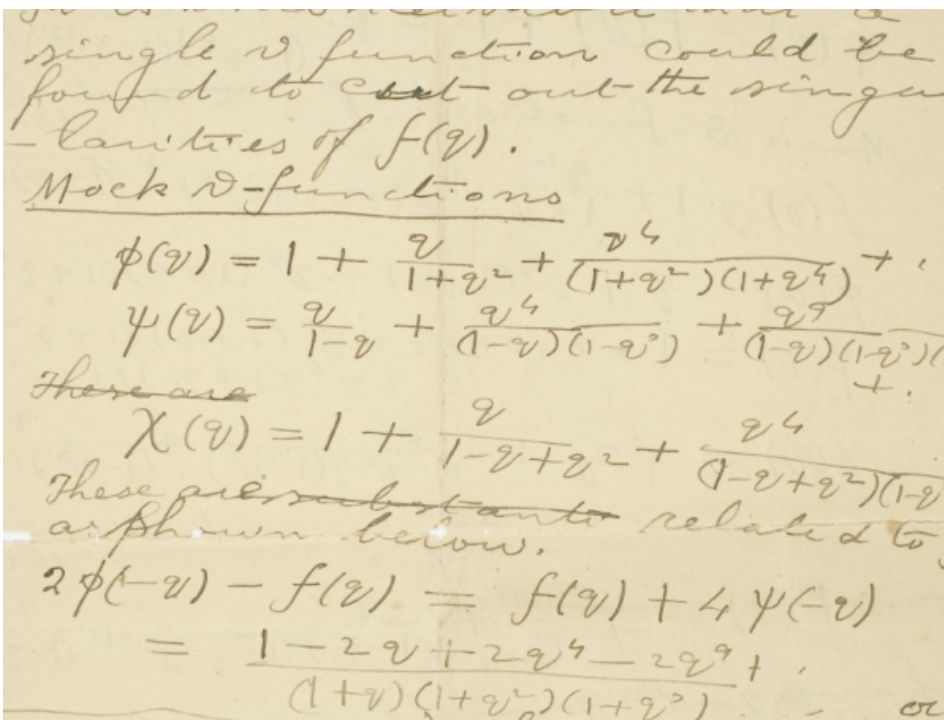 it is inconceivable that a
single ϑ function could be
found to cut out the singu
-larities of f(q).
Mock ϑ-functions
φ(q) = 1 + q/(1+q²) + q⁴/((1+q²)(1+q⁴)) + ·
ψ(q) = q/(1-q) + q⁴/((1-q)(1-q³)) + q⁹/((1-q)(1-q³)(
+ ·
There are
χ(q) = 1 + q/(1-q+q²) + q⁴/((1-q+q²)(1-q
These are related to
as shown below.
2φ(-q) - f(q) = f(q) + 4ψ(-q)
= (1 - 2q + 2q⁴ - 2q⁹ + ·)/((1+q)(1+q²)(1+q³) ·